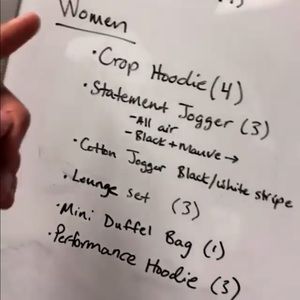 Women
• Crop Hoodie (4)
• Statement Jogger (3)
- All air
- Black + Mauve →
• Cotton Jogger Black/white stripe
• Lounge set (3)
• Mini Duffel Bag (1)
• Performance Hoodie (3)